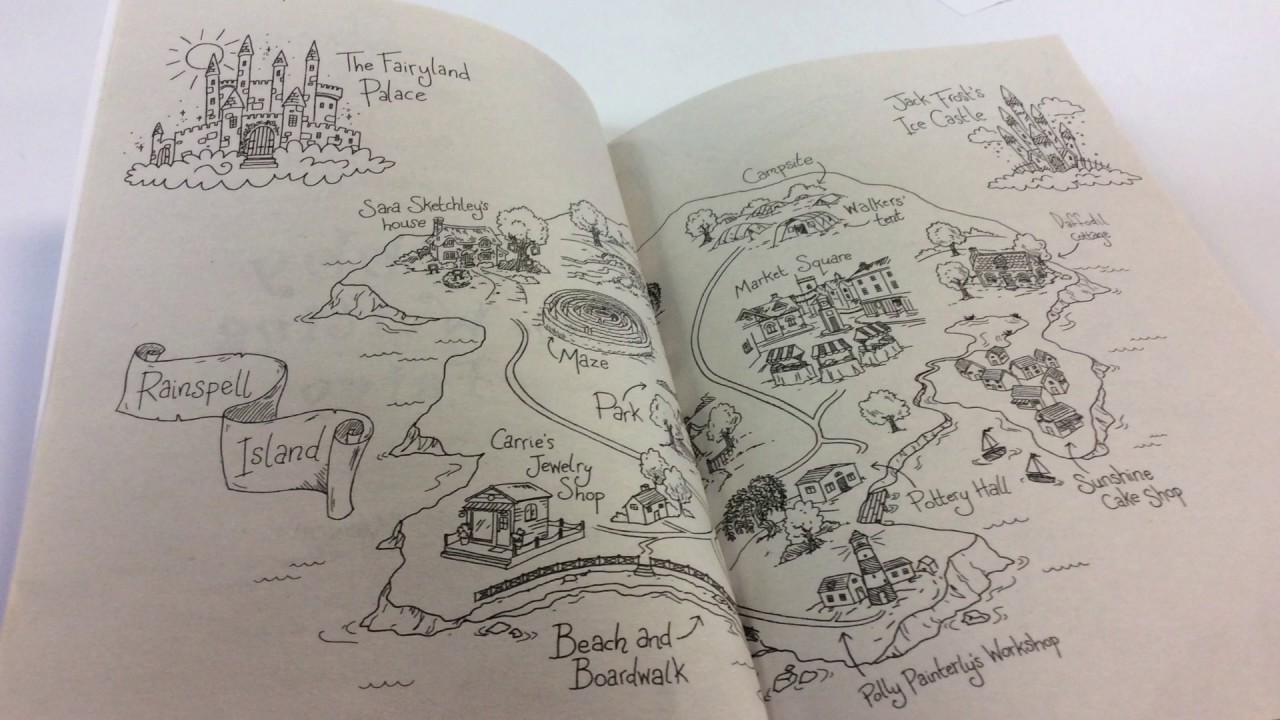 The Fairyland
Palace
Jack Frost's
Ice Castle
Campsite
Sara Sketchley's
house
Walkers'
tent
Daffodil
Cottage
Market Square
Maze
Rainspell
Island
Park
Carrie's
Jewelry
Shop
Pottery Hall
Sunshine
Cake Shop
Beach and
Boardwalk
Polly Painterly's Workshop